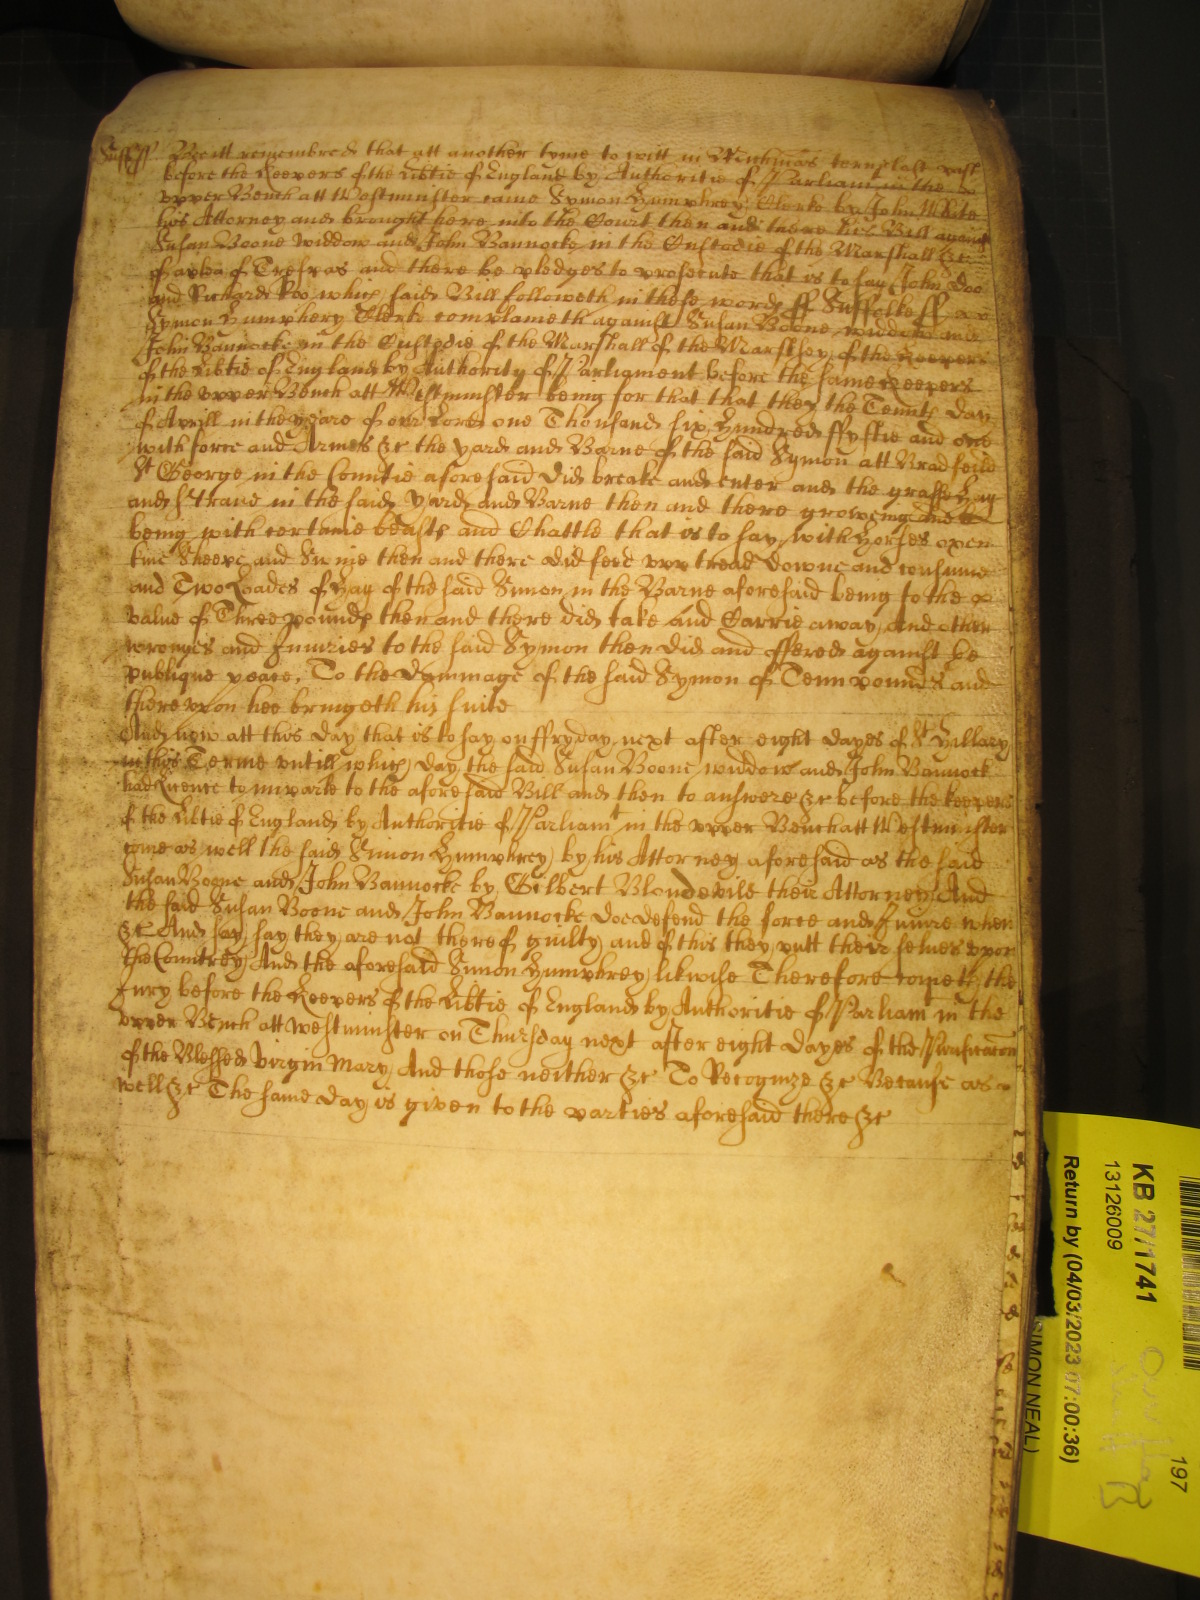 Suff ss Bee itt remembred that att another tyme to witt in Michmas terme last past
before the Keepers of the Libtie of England by Authoritie of Parliam in the
upper Bench att Westminster came Symon Humphrey Clerke by John White
his Attorney and brought here into the Court then and there his Bill against
Susan Boone widdow and John Bannocke in the Custodie of the Marshall &c
of a plea of Trespas and there be pledges to prosecute that is to say John Doo
and Richard Roo which said Bill followeth in these words ss Suffolke ss
Symon Humphery Clerke complaineth against Susan Boone widdow and
John Bannocke in the Custodie of the Marshall of the Marshsey of the Keepers
of the Libtie of England by Authority of Parliament before the same Keepers
in the upper Bench att Westminster being for that that they the Tenth day
of Aprill in the yeare of our Lord one Thousand six Hundred ffyftie and one
with force and Armes &c the yard and Barne of the said Symon att Bradfeild
St George in the Countie aforesaid did breake and enter and the grasse Hay
and Strawe in the said Yard and Barne then and there groweing and
being with certaine beasts and Chattle that is to say with Horses oxen
kine Sheepe and Swine then and there did feed upp tread downe and consume
and Two Loades of Hay of the said Simon in the Barne aforesaid being to the
value of Three pounds then and there did take and Carrie away and other
wronges and Injuries to the said Symon then did and offered against the
publique peace, To the Dammage of the said Symon of Tenn pounds and
thereupon hee bringeth his suite
And now att this day that is to say on ffryday next after eight dayes of St Hillary
in this Terme untill which day the said Susan Boone widdow and John Bannock
had Licence to imparle to the aforesaid Bill and then to answere &c before the keepers
of the Libtie of England by Authoritie of Parliamt in the upper Bench att Westminster
come as well the said Simon Humphrey by his Attorney aforesaid as the said
Susan Boone and John Bannocke by Gilbert Blondevile their Attorney And
the said Susan Boone and John Bannocke doe defend the force and Injurie when
&c And say say they are not thereof guilty and of this they putt themselves upon
the Countrey And the aforesaid Simon Humphrey likwise Therefore cometh the
Jury before the Keepers of the Libtie of England by Authoritie of Parliam in the
upper Bench att westminster on Thursday next after eight dayes of the Purificacon
of the Blessed Virgin Mary And those neither &c To Recognize &c Because as
well &c The same day is given to the parties aforesaid there &c
KB 27/1741
13126009
Return by (04/03/2023 07:00:36)
SIMON NEAL)
197